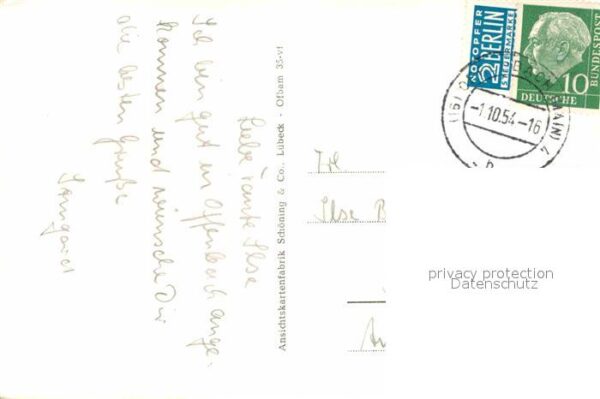 Liebe Tante Ilse
Ich bin gut in Offenbach ange-
kommen und wünsche Dir
die besten Grüße
Irmgard
Ansichtskartenfabrik Schöning & Co., Lübeck - Ofbam 35-vl
NOTOPFER
2 BERLIN
STEUERMARKE
10
DEUTSCHE BUNDESPOST
(16)
(MAIN) 4
-1.10.54-16
b
Ilse B
privacy protection
Datenschutz